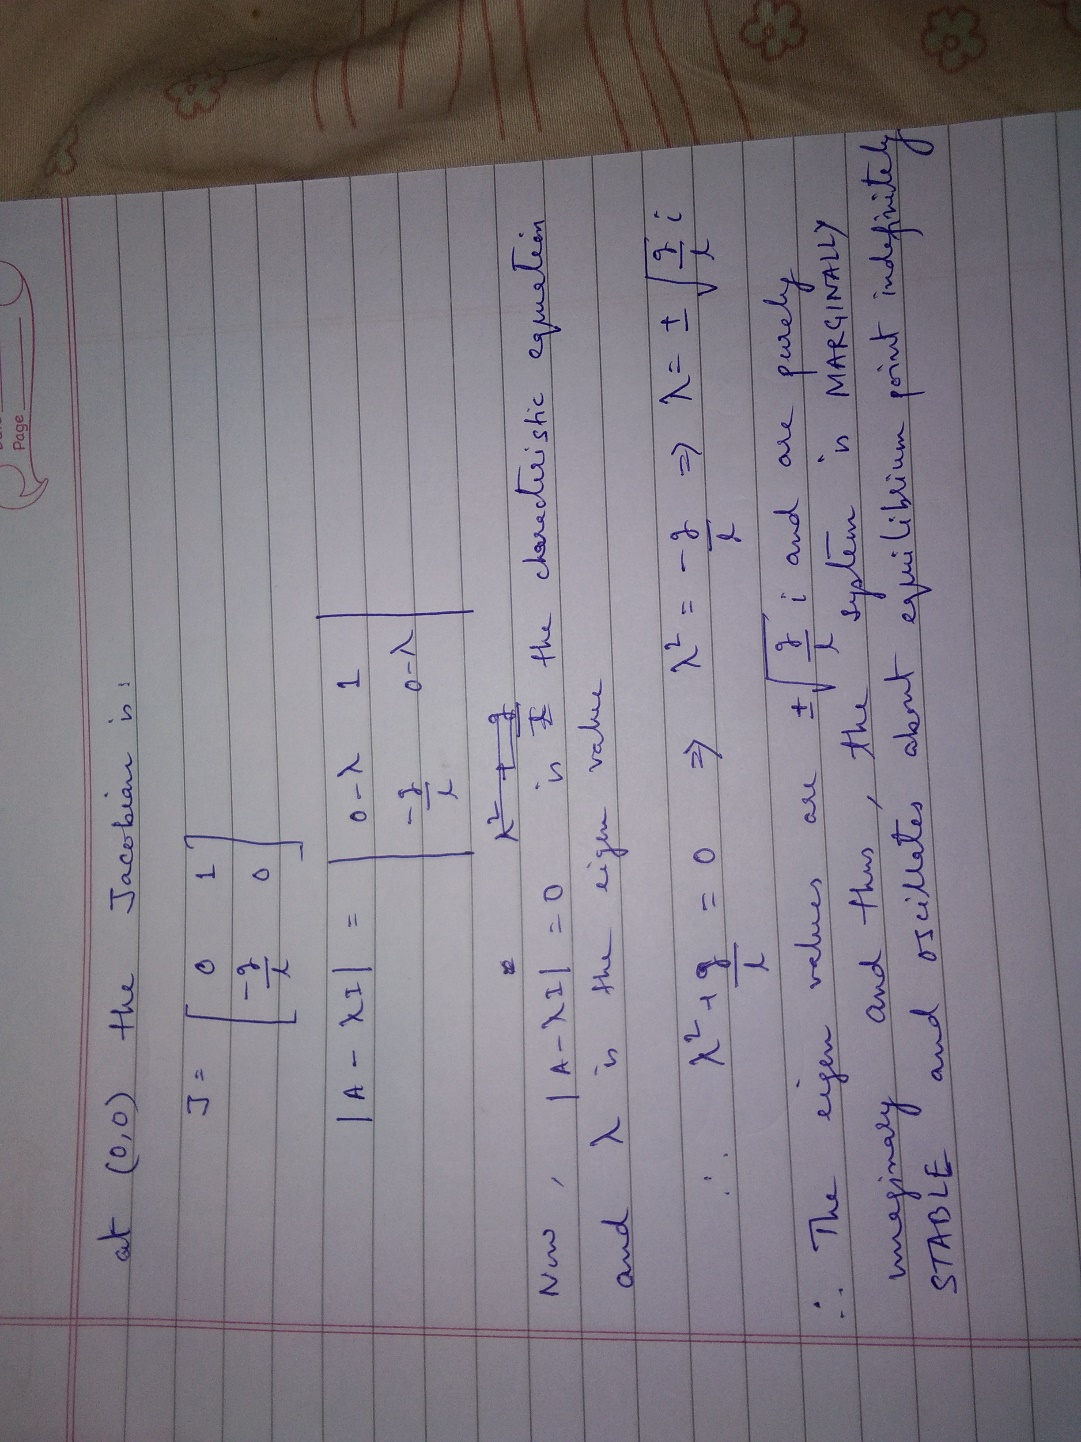 Page
at (0,0) the Jacobian is:
J = [ 0 1
-g/l 0 ]
|A - λI| = | 0-λ 1
-g/l 0-λ |
Now, |A - λI| = 0 is the charecteristic equation
and λ is the eigen value
∴ λ² + g/l = 0 ⇒ λ² = -g/l ⇒ λ = ± √(g/l) i
∴ The eigen values are ± √(g/l) i and are purely
imaginary and thus, the system is MARGINALLY
STABLE and oscillates about equilibrium point indefinitely